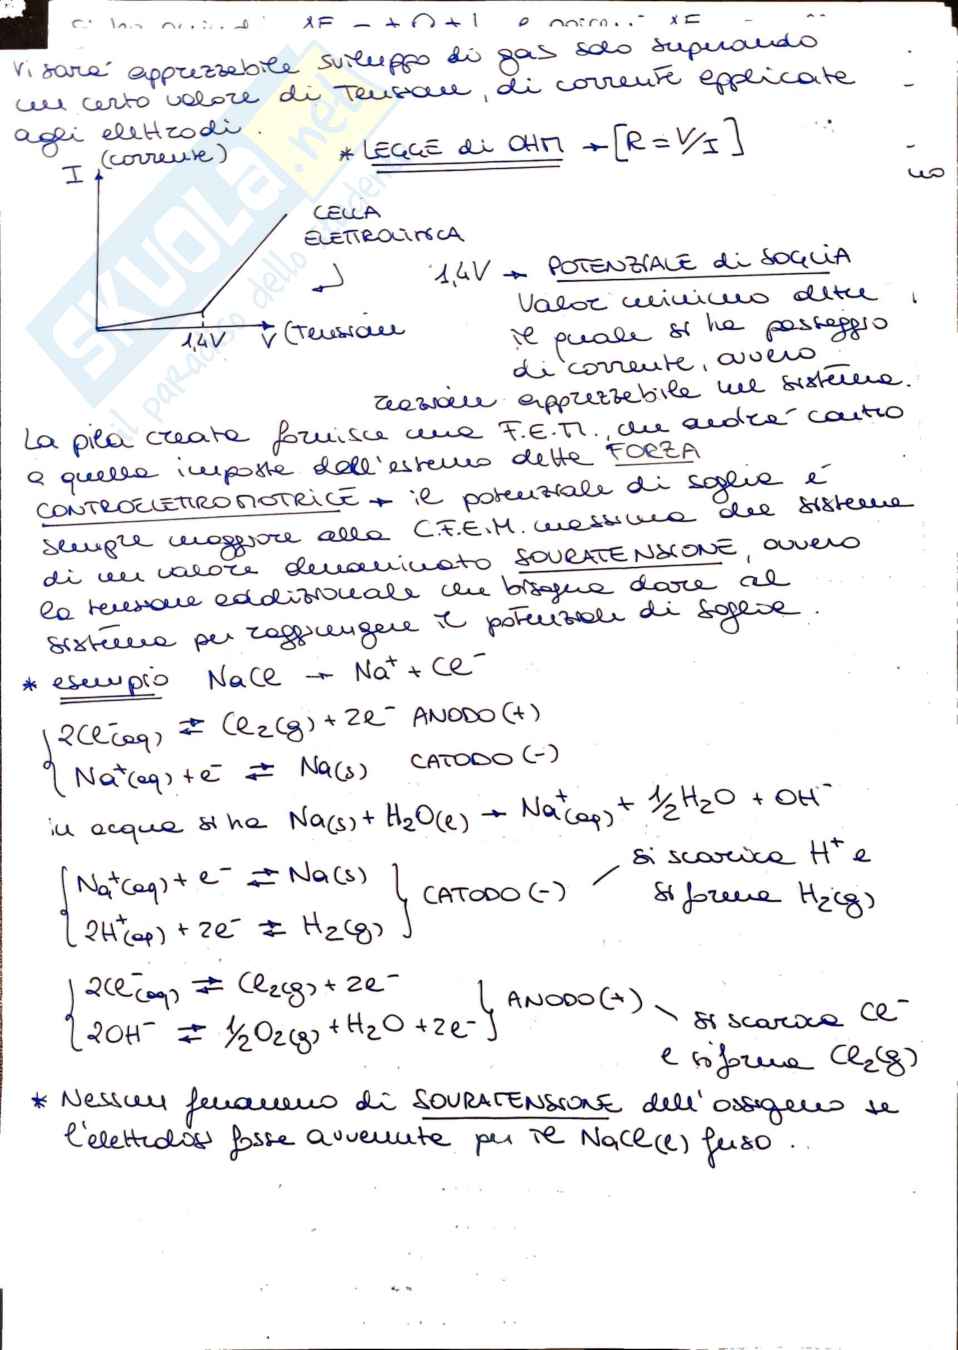 Vi sarà apprezzabile sviluppo di gas solo superando
un certo valore di Tensione, di corrente applicate
agli elettrodi.
* LEGGE di OHM → [R = V/I]
I (corrente)
CELLA
ELETTROLITICA
1,4V
V (Tensione
1,4V → POTENZIALE di SOGLIA
Valore minimo oltre
il quale si ha passaggio
di corrente, ovvero
reazione apprezzabile nel sistema.
no
La pila creata fornisce una F.E.M., che andrà contro
a quella imposta dall'esterno detta FORZA
CONTROELETTROMOTRICE → il potenziale di soglia è
sempre maggiore alla C.F.E.M. massima del sistema
di un valore denominato SOVRATENSIONE, ovvero
la tensione addizionale che bisogna dare al
sistema per raggiungere il potenziale di soglia.
* esempio NaCl → Na⁺ + Cl⁻
2Cl⁻(aq) ⇄ Cl₂(g) + 2e⁻ ANODO (+)
Na⁺(aq) + e⁻ ⇄ Na(s) CATODO (-)
in acqua si ha Na(s) + H₂O(l) → Na⁺(aq) + ½H₂O + OH⁻
Na⁺(aq) + e⁻ ⇄ Na(s)
2H⁺(aq) + 2e⁻ ⇄ H₂(g)
CATODO (-)
si scarica H⁺ e
si forma H₂(g)
2Cl⁻(aq) ⇄ Cl₂(g) + 2e⁻
2OH⁻ ⇄ ½O₂(g) + H₂O + 2e⁻
ANODO (+)
si scarica Cl⁻
e si forma Cl₂(g)
* Nessun fenomeno di SOVRATENSIONE dell'ossigeno se
l'elettrolisi fosse avvenuta per il NaCl(l) fuso.
SKUOLA.net
il paradiso dello studente